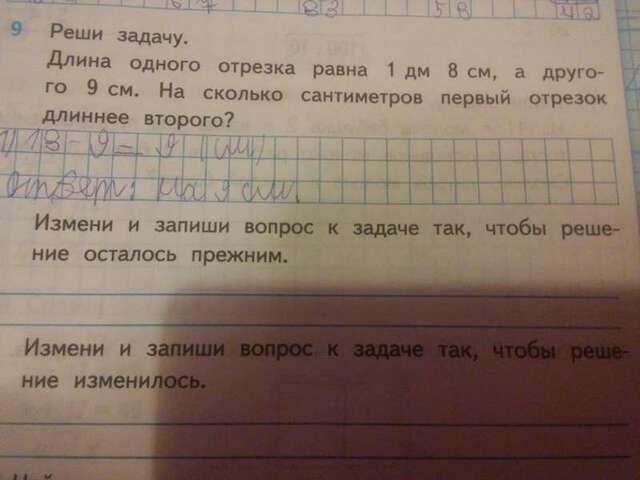 67 83 58 42
9 Реши задачу.
Длина одного отрезка равна 1 дм 8 см, а друго-
го 9 см. На сколько сантиметров первый отрезок
длиннее второго?
1) 18 - 9 = 9 (см)
ответ: на 9 см.
Измени и запиши вопрос к задаче так, чтобы реше-
ние осталось прежним.
Измени и запиши вопрос к задаче так, чтобы реше-
ние изменилось.